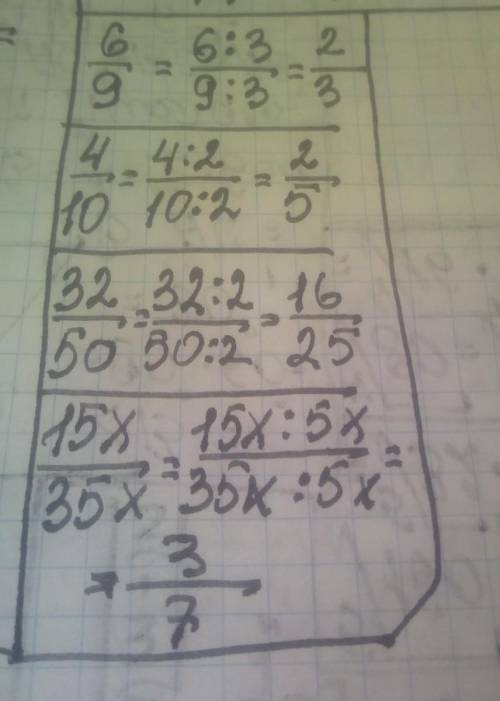 6/9 = 6:3/9:3 = 2/3
4/10 = 4:2/10:2 = 2/5
32/50 = 32:2/50:2 = 16/25
15x/35x = 15x:5x/35x:5x =
= 3/7